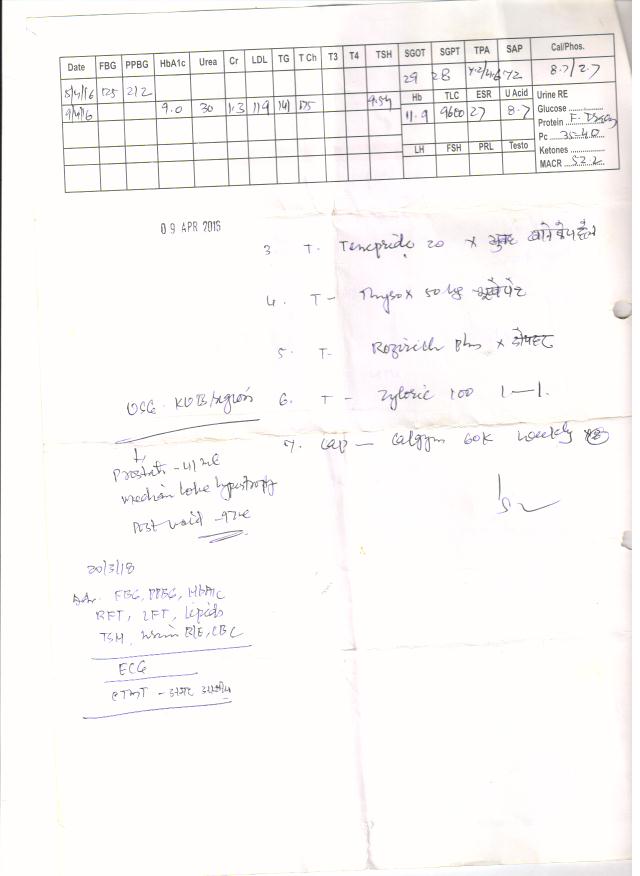 Date FBG PPBG HbA1c Urea Cr LDL TG T Ch T3 T4 TSH SGOT SGPT TPA SAP Cal/Phos.
29 28 7.2/4.6 72 8.7/2.7
5/4/16 125 212
9/4/16 9.0 30 1.3 119 141 175 9.54
Hb TLC ESR U Acid Urine RE
11.9 9600 27 8.7 Glucose
Protein F. Traces
Pc 35-40
LH FSH PRL Testo Ketones
MACR 52.2
09 APR 2016
3 T. Tenepride 20 x
4. T - Thyrox 50 µg
5. T- plus x
USG. KUB/region 6. T - Zyloric 100 1—1.
7. Cap — 60K weekly x8
Prostate - 41
median lobe hypertrophy
Post void - 92
20/3/18
Adv. FBG, PPBG, HbA1C
RFT, LFT, Lipids
TSH, urine R/E, CBC
ECG
CTMT -